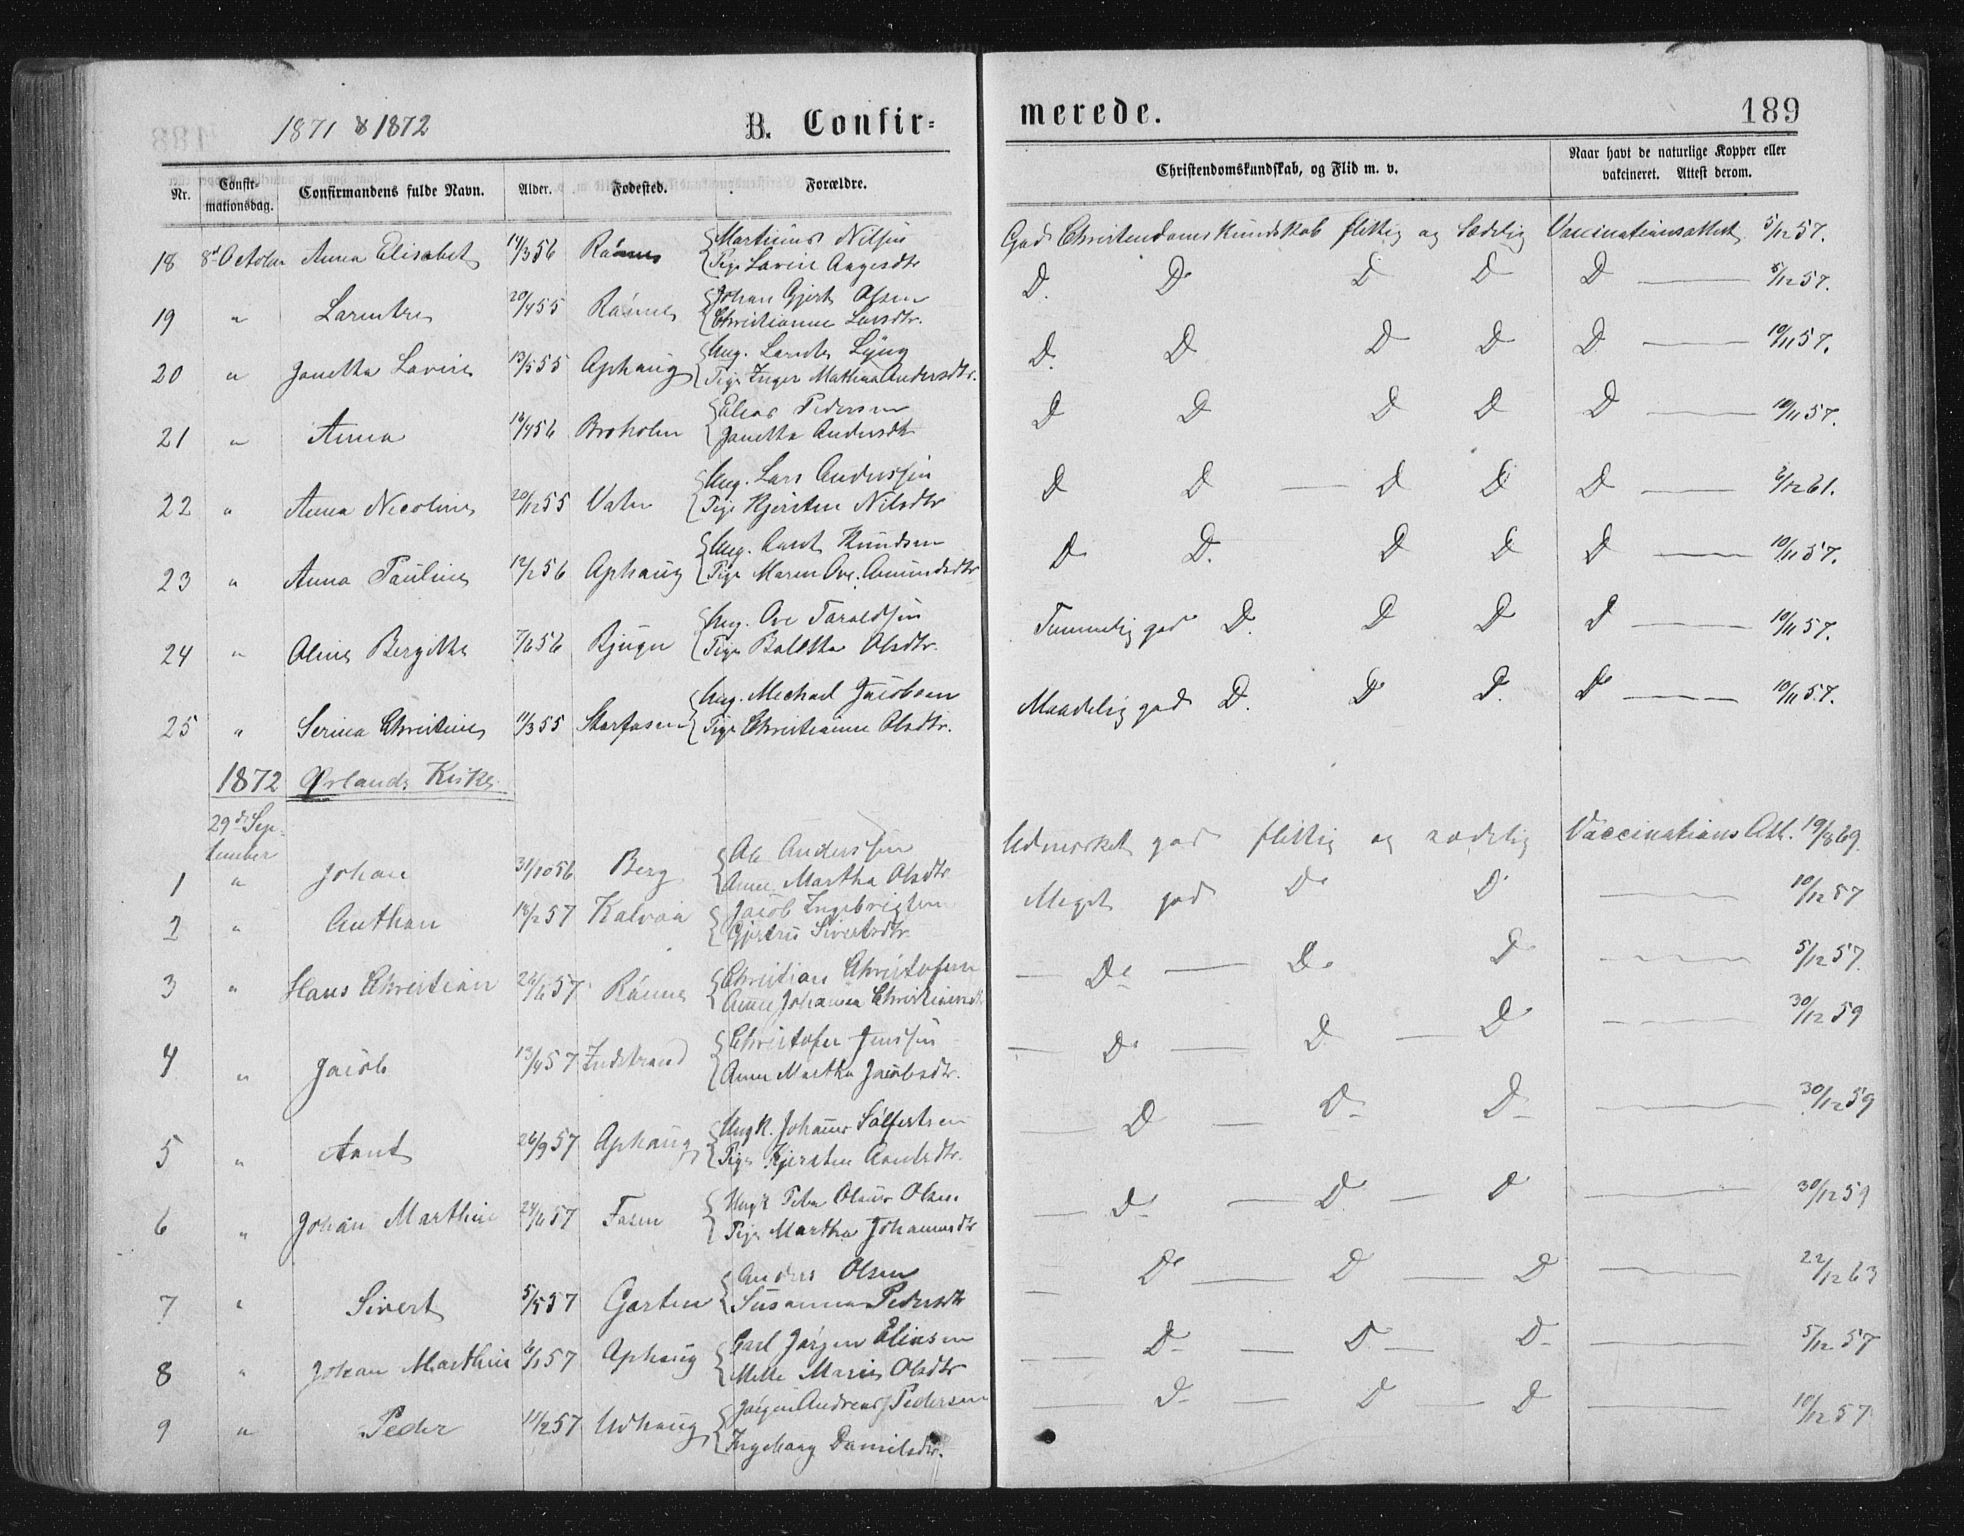 1871 & 1872
B. Confir=
merede.
189
Nr.
Confir-
mationsdag.
Confirmandens fulde Navn.
Alder.
Fødested.
Forældre.
Christendomskundskab, og Flid m. v.
Naar havt de naturlige Kopper eller
vakcineret. Attest derom.
18 8d October Anna Elisabet 14/3 56 Marticius Nilsen God Christendomskundskab flittig og Sædelig Vaccinationsattest 5/12 57.
Pige Lavine Aagesdtr
19 " 20/4 55 Johan Gjert Olsen D. D D D D 5/12 57.
Christianne Larsdtr.
20 " Janetha Lavine 13/5 55 Aphaug Ung. Lyng D. D D D D 10/11 57.
Pige Inger Mathea Andersdtr.
21 " Anna 16/4 56 Broholm Elias Pedersen D D D D D 10/11 57.
Janetha Andersdtr
22 " Anna Nicoline 20/12 55 Ung. Lars Anderssen D D D D D 6/12 61.
Pige Kjersten Nilsdtr
23 " Anna Pauline 12/2 56 Aphaug Ung. Knudsen D D. D D D 10/11 57.
Pige Maren Ove. Amundsdtr
24 " Oline Bergitha 7/6 56 Bjugn Ung. Ove Taraldsen Temmelig god D. D D D 10/11 57.
Pige Olsdtr.
25 " Serina Christine 11/3 55 Ung. Michael Jacobsen Maadelig god D. D D. D 10/11 57.
Pige Christianne Olsdtr.
1872 Ørlands Kirke
29de Sep-
tember
1 " Johan 31/10 56 Berg Ole Anderssen Udmærket god flittig og sædelig Vaccinations Att. 19/8 69.
Anne Martha Olsdtr
2 " Anthon 18/2 57 Jacob Ingebrigtsen Meget god D D 10/12 57
Sivertsdtr
3 " Hans Christian 26/6 57 Christian Christofersen D D D 5/12 57.
Anne Johanna
4 " Jacob 13/4 57 Indstrand Christofer Jenssen D D D 30/12 59
Anne Martha Jacobsdtr.
5 " Arnt 26/9 57 Aphaug Ungk. D D D 30/12 59
Pige Kjersten Arntsdtr.
6 " Johan Marthin 24/6 57 Ungk Peter Olaus Olsen D D D 30/12 59
Pige Martha Johannesdtr
7 " Sivert 5/5 57 Garten Anders Olsen D D D 22/12 63
Susanna Pedersdtr
8 " Johan Marthin 6/1 57 Aphaug Carl Jørgen Eliasen D D D 5/12 57
Mette Marie Olsdtr
9 " Peder 14/2 57 Udhaug Jørgen Andreas Pedersen D D D 10/12 57
Ingeborg Danielsdtr.